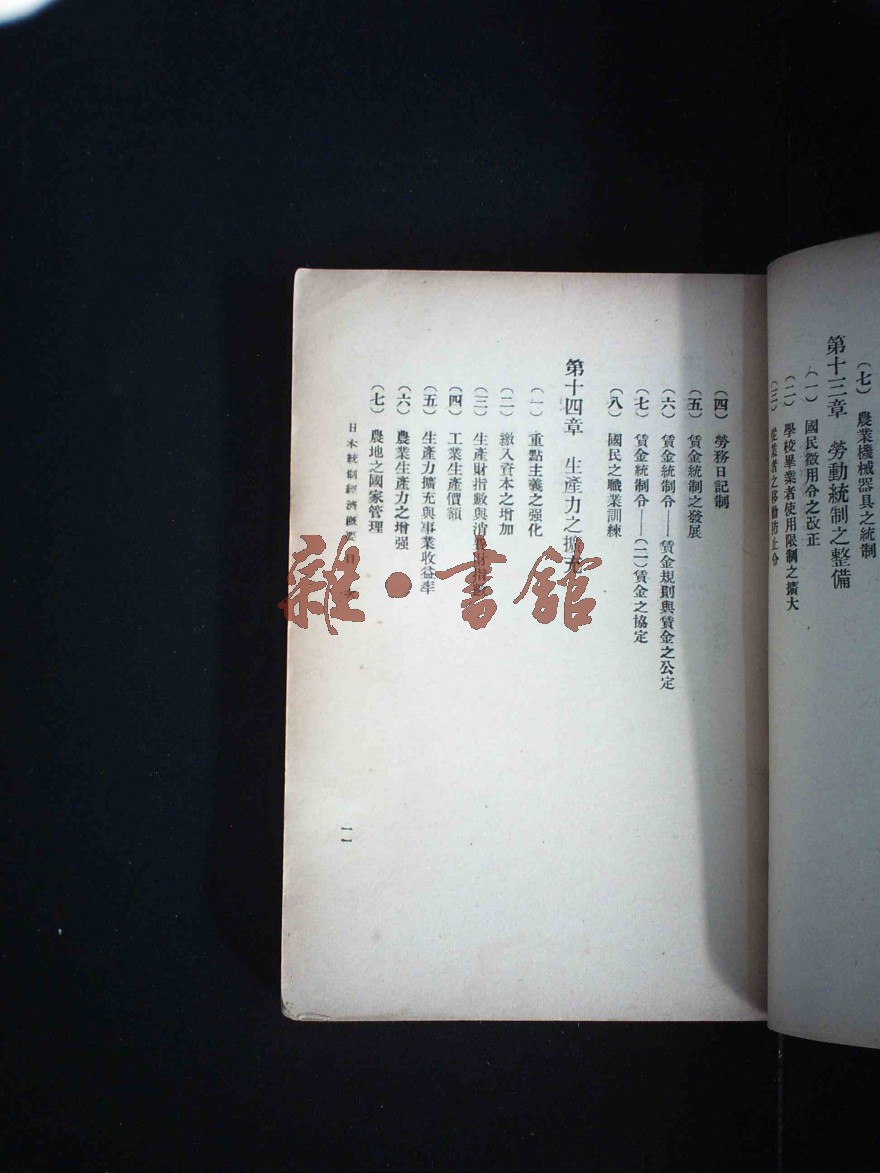 （七）　農業機械器具之統制
第十三章　勞動統制之整備
（一）　國民徵用令之改正
（二）　學校畢業者使用限制之擴大
（三）　從業者之移動防止令
（四）　勞務日記制
（五）　賃金統制之發展
（六）　賃金統制令——賃金規則與賃金之公定
（七）　賃金統制令——（二）賃金之協定
（八）　國民之職業訓練
第十四章　生產力之擴充
（一）　重點主義之强化
（二）　繳入資本之增加
（三）　生產財指數與消費財指數
（四）　工業生產價額
（五）　生產力擴充與事業收益率
（六）　農業生產力之增强
（七）　農地之國家管理
日本統制經濟概要　目　次
一一
雜·書館